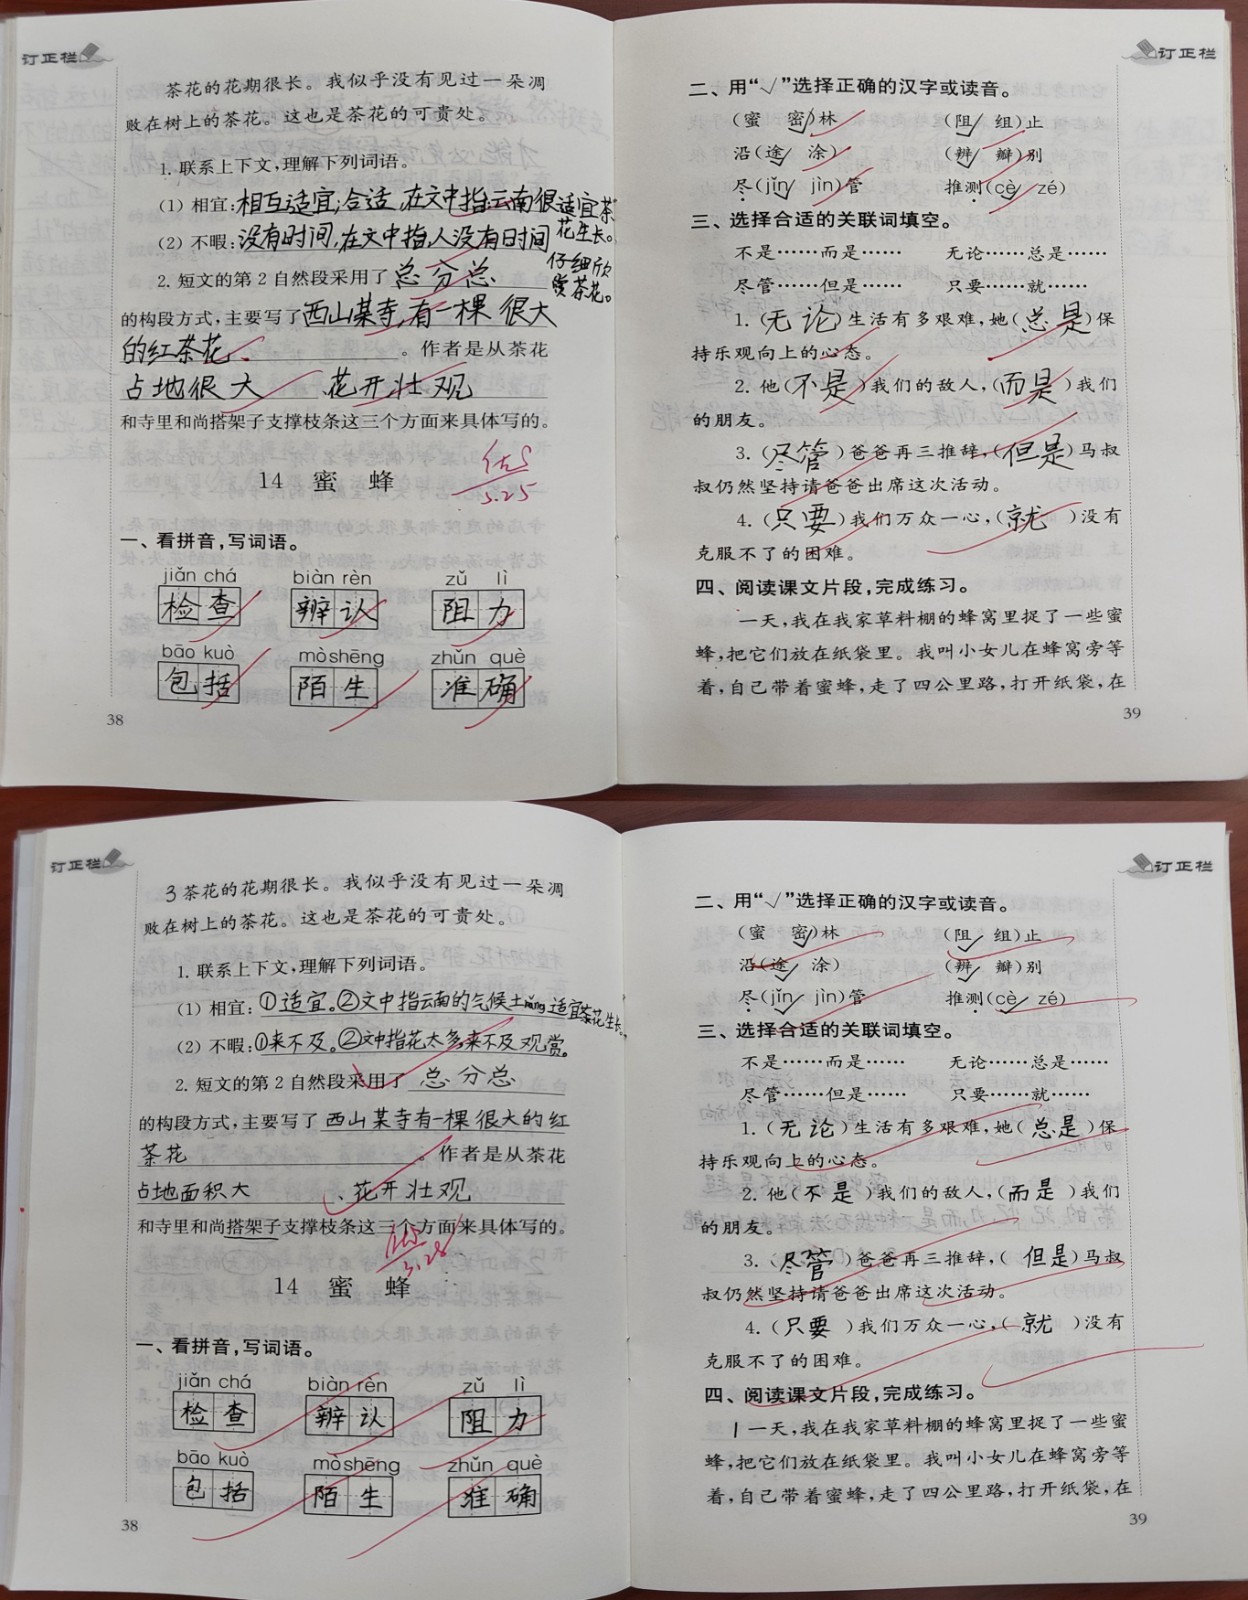 订正栏
茶花的花期很长。我似乎没有见过一朵凋
败在树上的茶花。这也是茶花的可贵处。
1. 联系上下文,理解下列词语。
(1) 相宜:相互适宜,合适,在文中指云南很适宜茶
花生长。
(2) 不暇:没有时间,在文中指人没有时间
仔细欣
赏茶花。
2. 短文的第2自然段采用了 总 分 总
的构段方式,主要写了西山某寺,有一棵很大
的红茶花 。作者是从茶花
占地很大 、花开壮观
和寺里和尚搭架子支撑枝条这三个方面来具体写的。
优
5.25
14 蜜 蜂
一、看拼音,写词语。
jiǎn chá biàn rèn zǔ lì
检查 辨认 阻力
bāo kuò mò shēng zhǔn què
包括 陌生 准确
38
订正栏
二、用“√”选择正确的汉字或读音。
(蜜 密√)林 (阻√ 组)止
沿(途√ 涂) (辨√ 瓣)别
尽(jǐn√ jìn)管 推测(cè√ zé)
三、选择合适的关联词填空。
不是……而是…… 无论……总是……
尽管……但是…… 只要……就……
1. (无论)生活有多艰难,她(总是)保
持乐观向上的心态。
2. 他(不是)我们的敌人,(而是)我们
的朋友。
3. (尽管)爸爸再三推辞,(但是)马叔
叔仍然坚持请爸爸出席这次活动。
4. (只要)我们万众一心,(就 )没有
克服不了的困难。
四、阅读课文片段,完成练习。
一天,我在我家草料棚的蜂窝里捉了一些蜜
蜂,把它们放在纸袋里。我叫小女儿在蜂窝旁等
着,自己带着蜜蜂,走了四公里路,打开纸袋,在
39
订正栏
3 茶花的花期很长。我似乎没有见过一朵凋
败在树上的茶花。这也是茶花的可贵处。
1. 联系上下文,理解下列词语。
(1) 相宜:①适宜。②文中指云南的气候土rǎng适宜茶花生长。
(2) 不暇:①来不及。②文中指花太多来不及观赏。
2. 短文的第2自然段采用了 总 分 总
的构段方式,主要写了西山某寺有一棵很大的红
茶花 。作者是从茶花
占地面积大 、花开壮观
和寺里和尚搭架子支撑枝条这三个方面来具体写的。
14 蜜 蜂
一、看拼音,写词语。
jiǎn chá biàn rèn zǔ lì
检查 辨认 阻力
bāo kuò mò shēng zhǔn què
包括 陌生 准确
38
订正栏
二、用“√”选择正确的汉字或读音。
(蜜 密√)林 (阻√ 组)止
沿(途√ 涂) (辨√ 瓣)别
尽(jǐn√ jìn)管 推测(cè√ zé)
三、选择合适的关联词填空。
不是……而是…… 无论……总是……
尽管……但是…… 只要……就……
1. (无论)生活有多艰难,她(总是)保
持乐观向上的心态。
2. 他(不是)我们的敌人,(而是)我们
的朋友。
3. (尽管)爸爸再三推辞,(但是)马叔
叔仍然坚持请爸爸出席这次活动。
4. (只要)我们万众一心,(就 )没有
克服不了的困难。
四、阅读课文片段,完成练习。
1 一天,我在我家草料棚的蜂窝里捉了一些蜜
蜂,把它们放在纸袋里。我叫小女儿在蜂窝旁等
着,自己带着蜜蜂,走了四公里路,打开纸袋,在
39